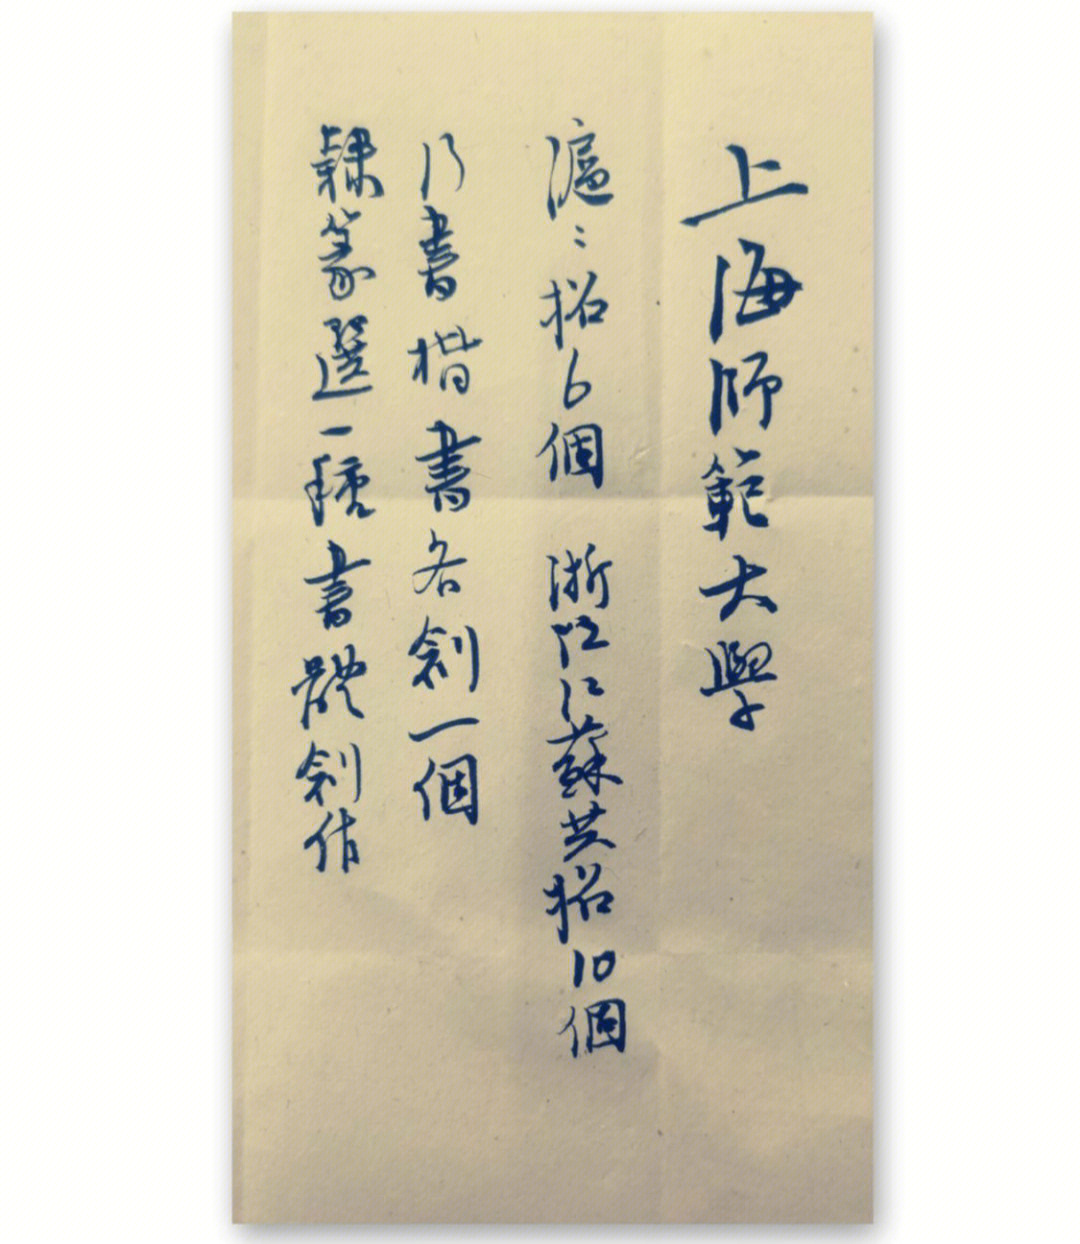 上海師範大學
滬：招6個 浙江江蘇共招10個
行書楷書各創一個
隸篆選一種書體創作